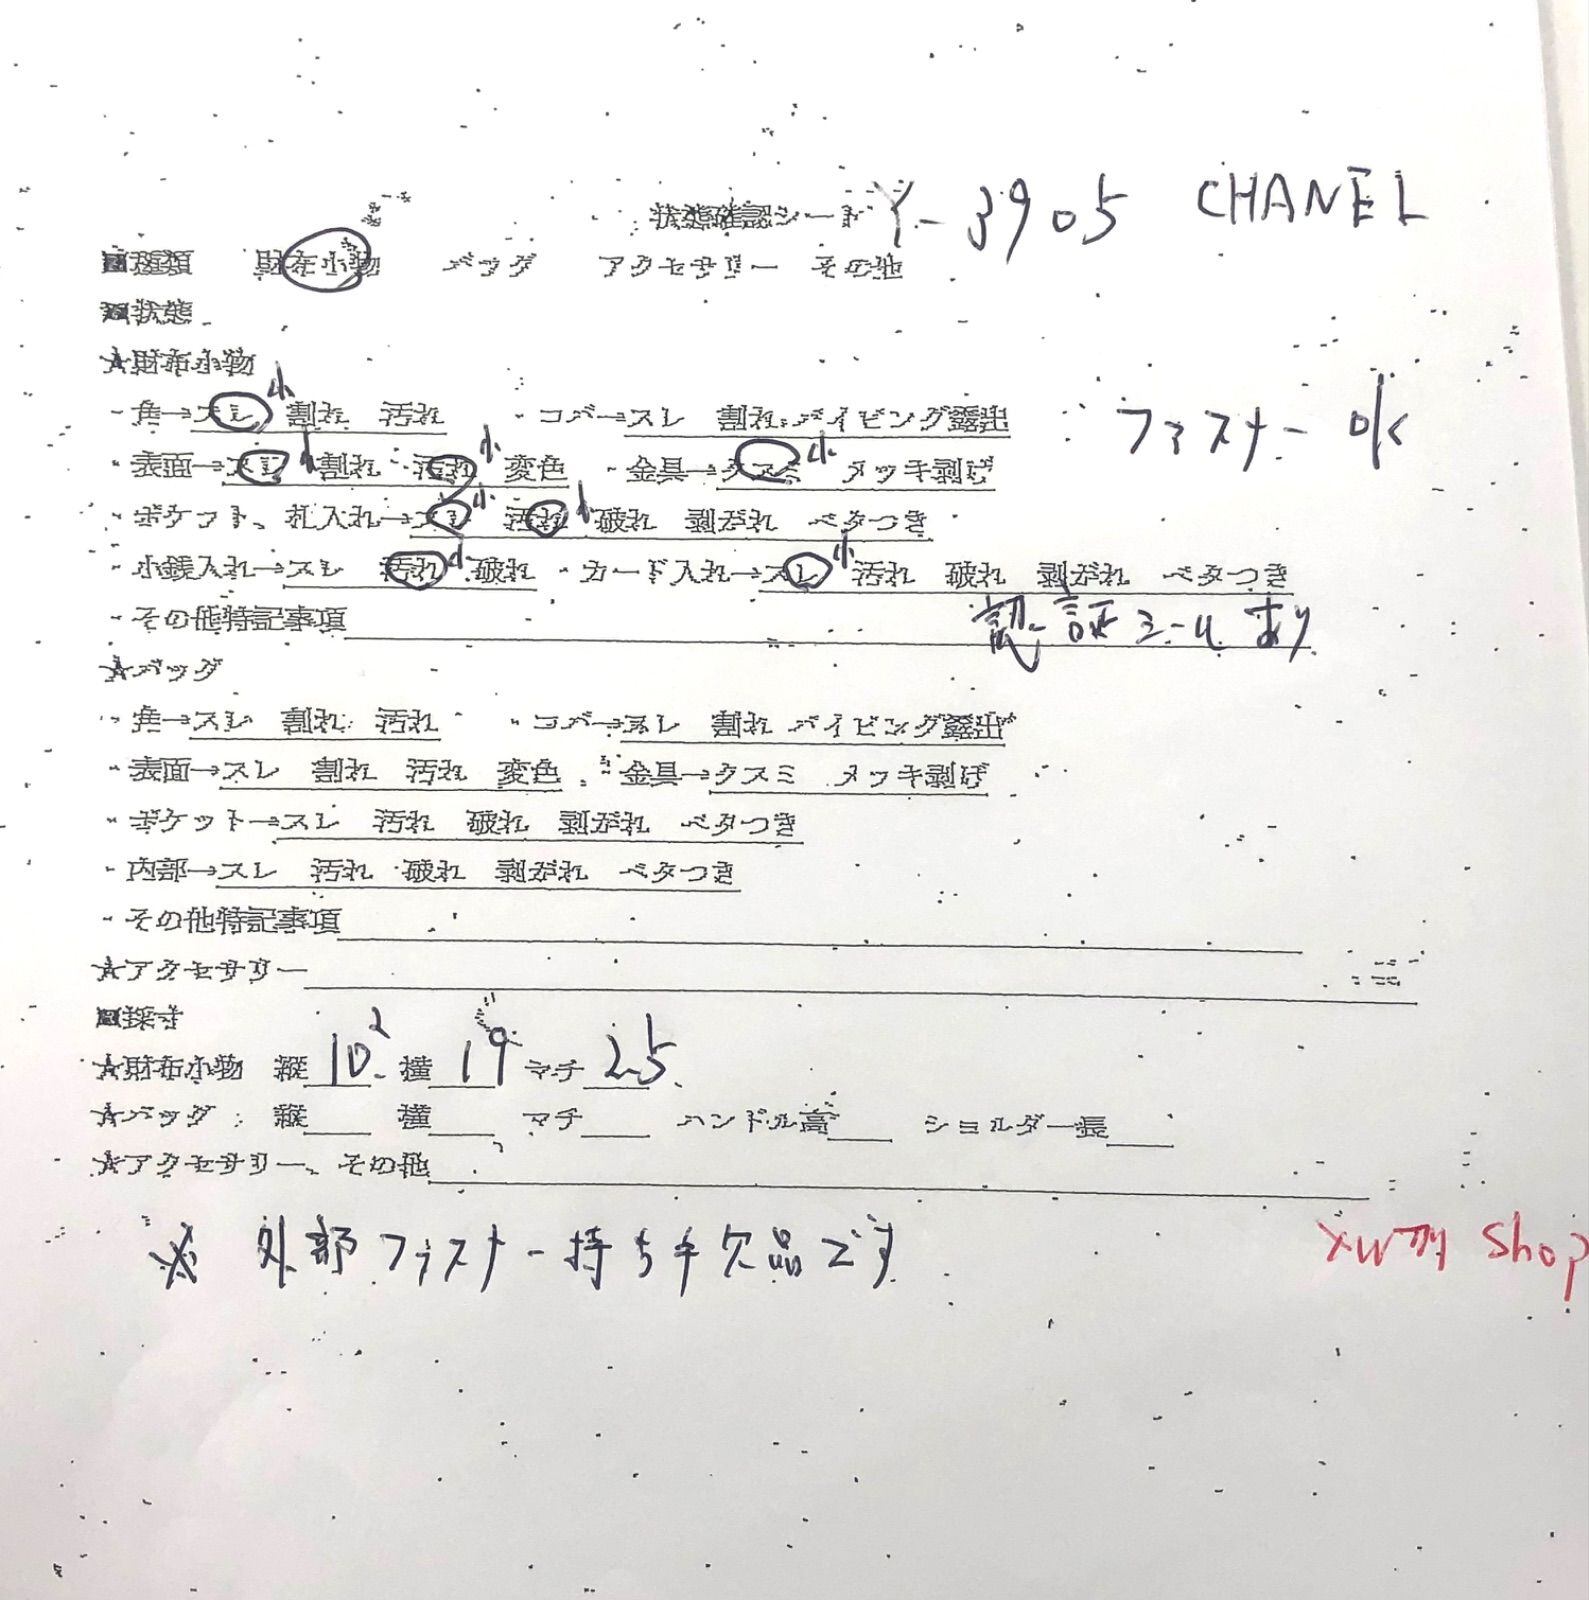 状態確認シート Y-3905 CHANEL
■種類 財布小物 バッグ アクセサリー その他
■状態
★財布小物
・角→スレ 小 割れ 汚れ ・コバ→スレ 割れ パイピング露出 ファスナー OK
・表面→スレ 小 割れ 汚れ 小 変色 ・金具→クスミ 小 メッキ剥げ
・ポケット、札入れ→スレ 小 汚れ 小 破れ 剥がれ ベタつき
・小銭入れ→スレ 汚れ 小 破れ ・カード入れ→スレ 小 汚れ 破れ 剥がれ ベタつき
・その他特記事項 認証シールあり
★バッグ
・角→スレ 割れ 汚れ ・コバ→スレ 割れ パイピング露出
・表面→スレ 割れ 汚れ 変色 ・金具→クスミ メッキ剥げ
・ポケット→スレ 汚れ 破れ 剥がれ ベタつき
・内部→スレ 汚れ 破れ 剥がれ ベタつき
・その他特記事項
★アクセサリー
■採寸
★財布小物 縦 10.2 横 19 マチ 2.5
★バッグ 縦 横 マチ ハンドル高 ショルダー長
★アクセサリー、その他
※ 外部ファスナー持ち手欠品です
shop